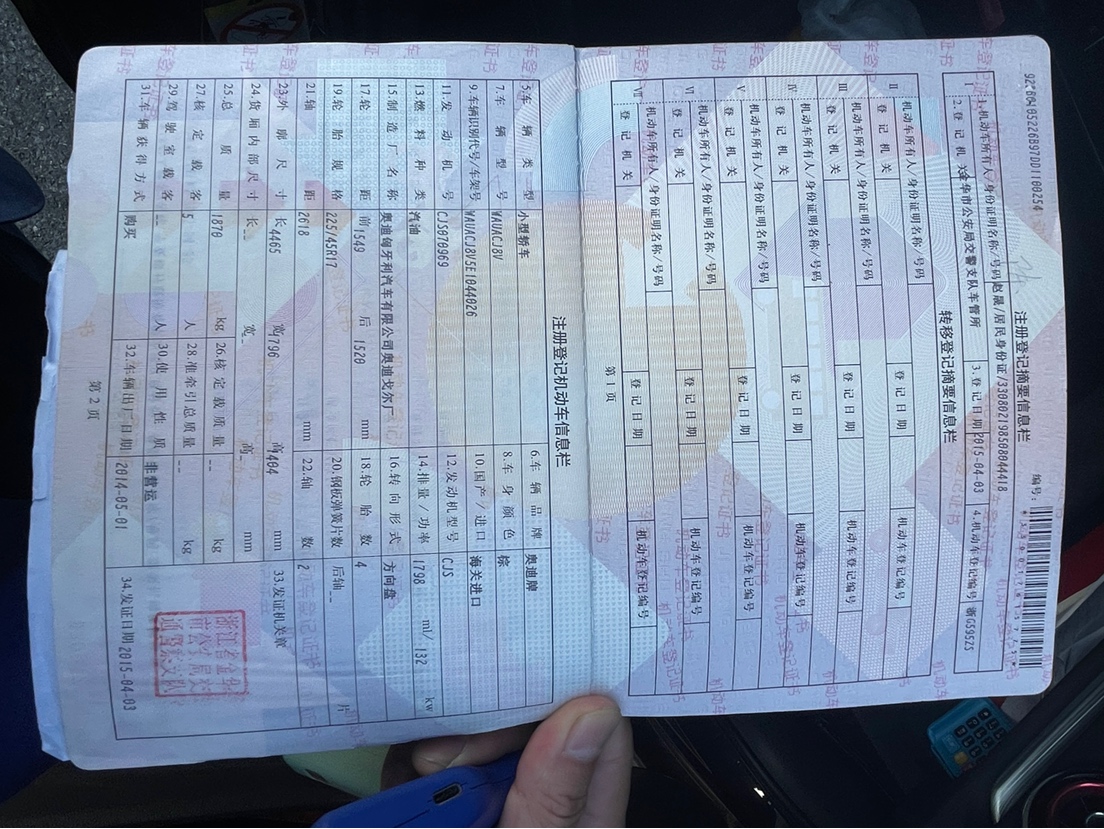 92CB0405226B97DD1100254
编号:
注册登记摘要信息栏
I
1.机动车所有人/身份证明名称/号码 赵晟/居民身份证/330802198508044418
2.登记机关 金华市公安局交警支队车管所 3.登记日期 2015-04-03 4.机动车登记编号 浙G595Z5
转移登记摘要信息栏
II 机动车所有人/身份证明名称/号码
登记机关 登记日期 机动车登记编号
III 机动车所有人/身份证明名称/号码
登记机关 登记日期 机动车登记编号
IV 机动车所有人/身份证明名称/号码
登记机关 登记日期 机动车登记编号
V 机动车所有人/身份证明名称/号码
登记机关 登记日期 机动车登记编号
VI 机动车所有人/身份证明名称/号码
登记机关 登记日期 机动车登记编号
VII 机动车所有人/身份证明名称/号码
登记机关 登记日期 机动车登记编号
第1页
注册登记机动车信息栏
5.车辆类型 小型轿车 6.车辆品牌 奥迪牌
7.车辆型号 WAUACJ8V 8.车身颜色 棕
9.车辆识别代号/车架号 WAUACJ8V5E1044026 10.国产/进口 海关进口
11.发动机号 CJS070969 12.发动机型号 CJS
13.燃料种类 汽油 14.排量/功率 1798 ml/ 132 kw
15.制造厂名称 奥迪匈牙利汽车有限公司奥迪戈尔厂 16.转向形式 方向盘
17.轮距 前1549 后 1520 mm 18.轮胎数 4
19.轮胎规格 225/45R17 20.钢板弹簧片数 后轴 -- 片
21.轴距 2618 mm 22.轴数 2
23.外廓尺寸 长4465 宽1796 高1404 mm 33.发证机关章
24.货厢内部尺寸 长-- 宽-- 高-- mm
25.总质量 1870 kg 26.核定载质量 -- kg
27.核定载客 5 人 28.准牵引总质量 -- kg
29.驾驶室载客 -- 人 30.使用性质 非营运
31.车辆获得方式 购买 32.车辆出厂日期 2014-05-01 34.发证日期 2015-04-03
第2页